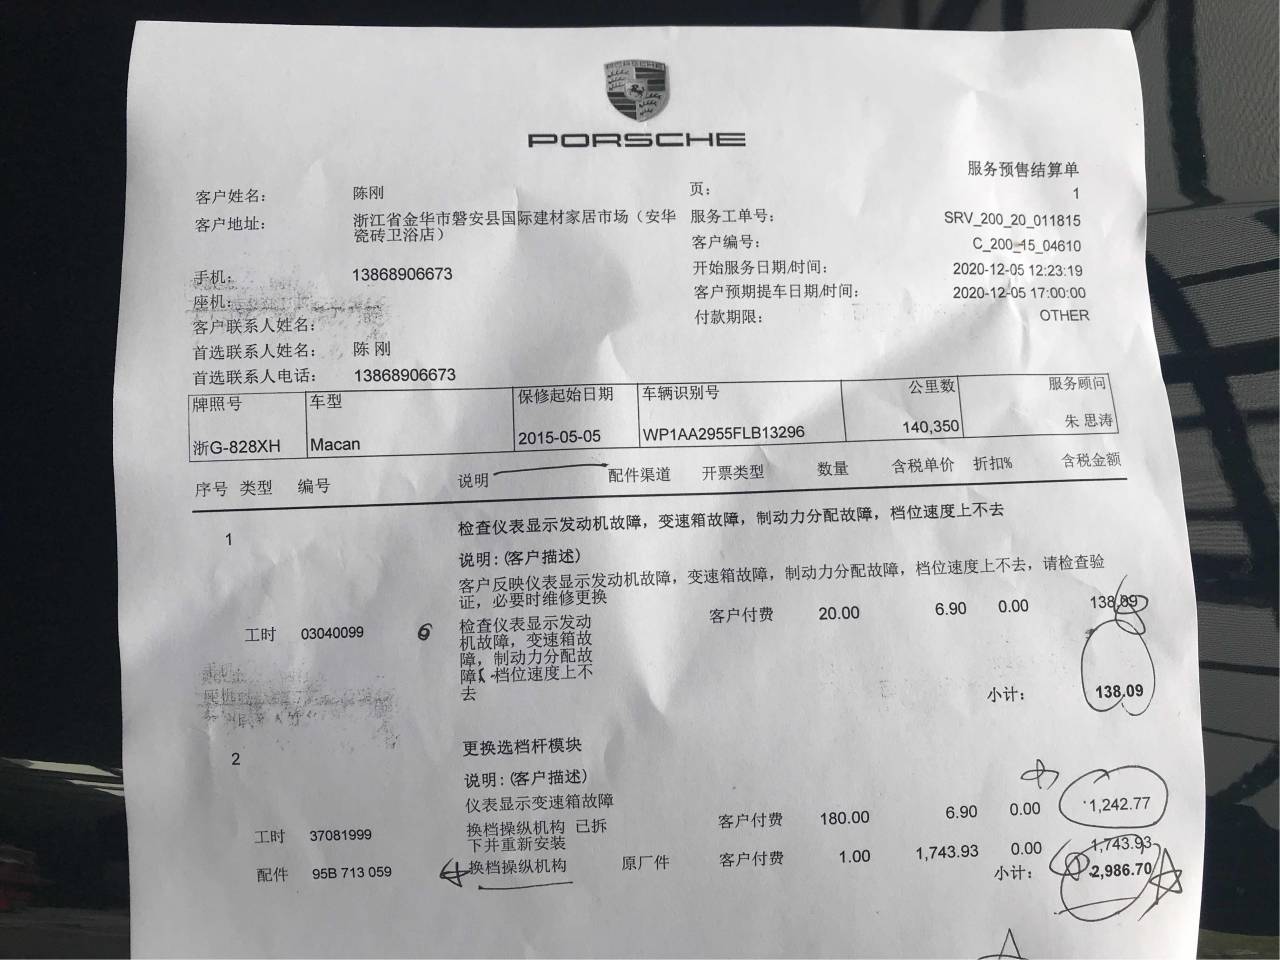 PORSCHE
PORSCHE
服务预售结算单
客户姓名： 陈刚 页： 1
客户地址： 浙江省金华市磐安县国际建材家居市场（安华 服务工单号： SRV_200_20_011815
瓷砖卫浴店） 客户编号： C_200_15_04610
手机： 13868906673 开始服务日期/时间： 2020-12-05 12:23:19
座机： 客户预期提车日期/时间： 2020-12-05 17:00:00
客户联系人姓名： 付款期限： OTHER
首选联系人姓名： 陈 刚
首选联系人电话： 13868906673
牌照号 车型 保修起始日期 车辆识别号 公里数 服务顾问
浙G-828XH Macan 2015-05-05 WP1AA2955FLB13296 140,350 朱 思涛
序号 类型 编号 说明 配件渠道 开票类型 数量 含税单价 折扣% 含税金额
1 检查仪表显示发动机故障，变速箱故障，制动力分配故障，档位速度上不去
说明:(客户描述)
客户反映仪表显示发动机故障，变速箱故障，制动力分配故障，档位速度上不去，请检查验
证，必要时维修更换
工时 03040099 检查仪表显示发动 客户付费 20.00 6.90 0.00 138.09
机故障，变速箱故
障，制动力分配故
障，档位速度上不
去
小计： 138.09
2 更换选档杆模块
说明:(客户描述)
仪表显示变速箱故障
工时 37081999 换档操纵机构 已拆 客户付费 180.00 6.90 0.00 1,242.77
下并重新安装
配件 95B 713 059 换档操纵机构 原厂件 客户付费 1.00 1,743.93 0.00 1,743.93
小计： 2,986.70